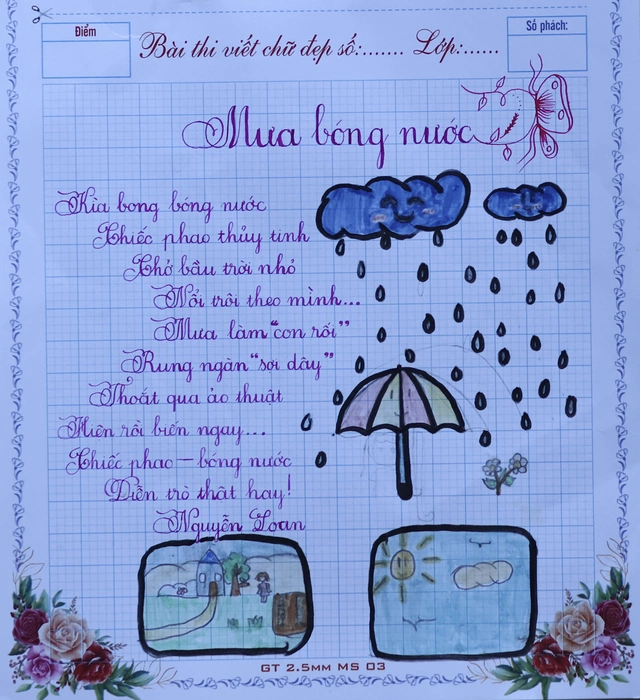 Điểm
Bài thi viết chữ đẹp số:....... Lớp:......
Số phách:
Mưa bóng nước
Kìa bong bóng nước
Chiếc phao thủy tinh
Chở bầu trời nhỏ
Nổi trôi theo mình...
Mưa làm "con rối"
Rung ngàn "sợi dây"
Thoát qua ảo thuật
Hiện rồi biến ngay...
Chiếc phao – bóng nước
Diễn trò thật hay!
Nguyễn Loan
GT 2.5MM MS 03